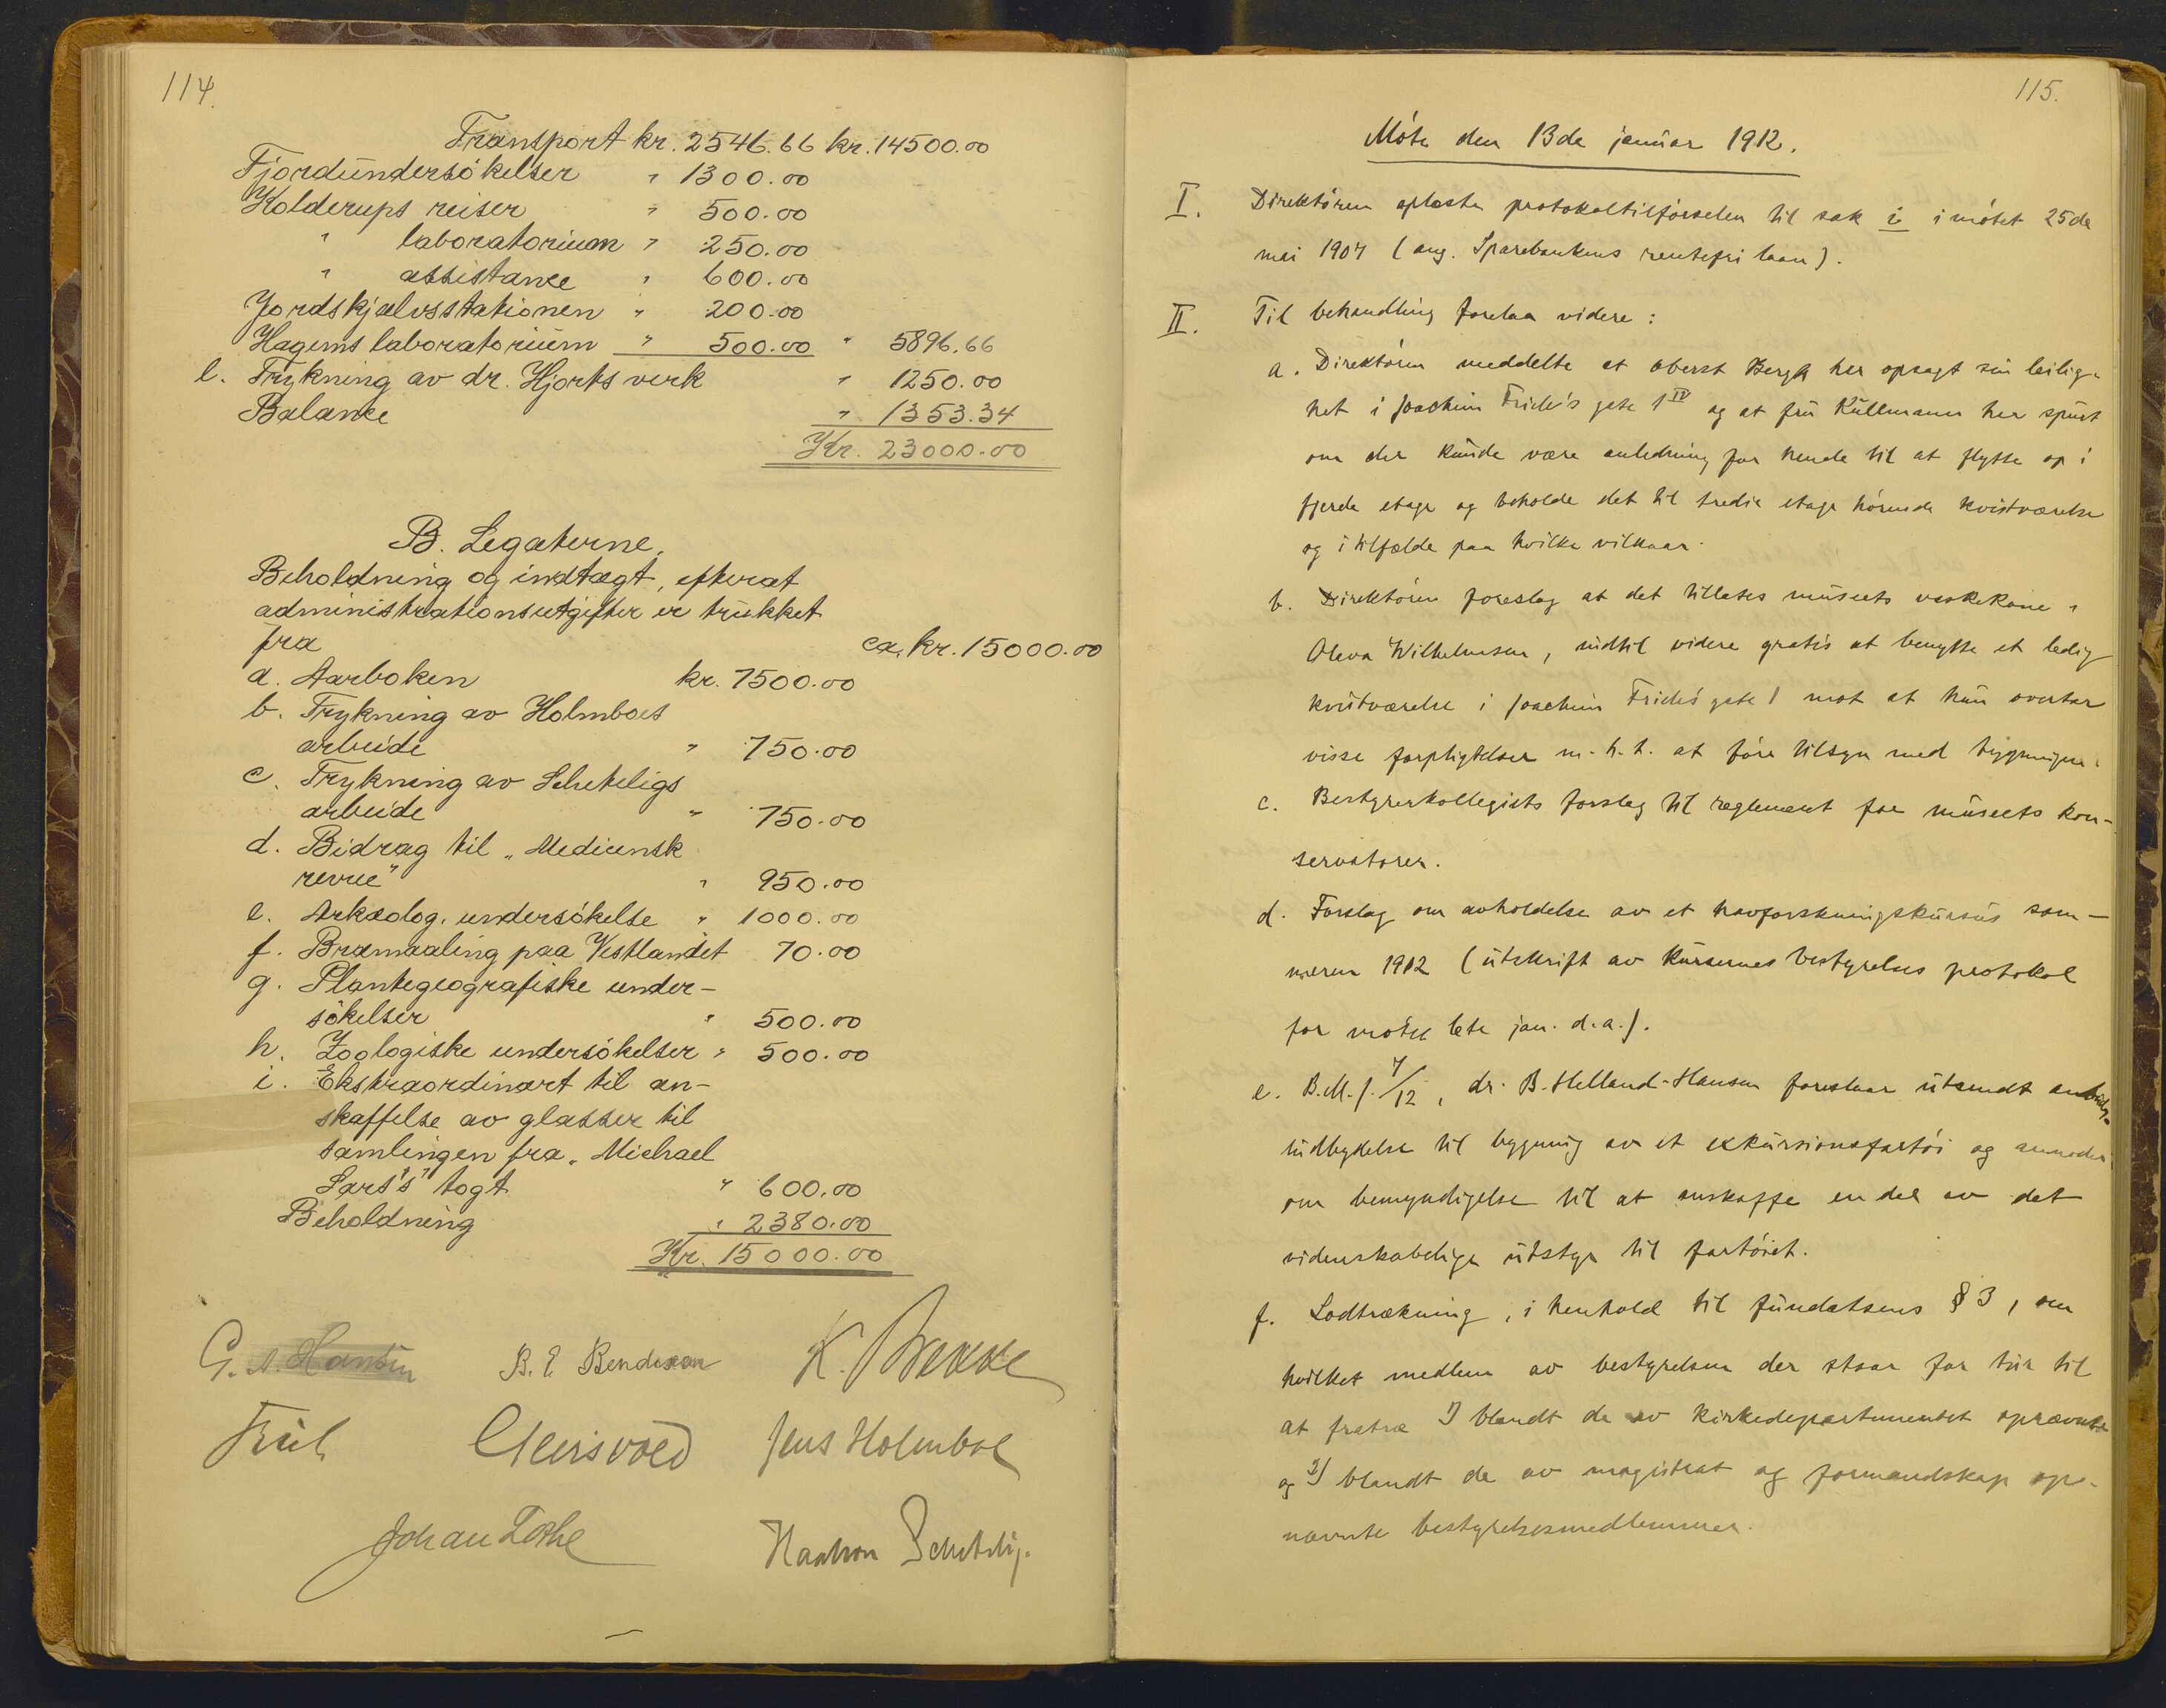 114.
Transport kr. 2546.66 kr. 14500.00
Fjordundersökelser " 1300.00
Kolderups reiser " 500.00
" laboratorium " 250.00
" assistance " 600.00
Jordskjælvsstationen " 200.00
Hagems laboratorium " 500.00 " 5896.66
l. Trykning av dr. Hjorts verk " 1250.00
Balance " 1353.34
Kr. 23000.00
B. Legaterne.
Beholdning og indtægt, efterat
administrationsutgifter er trukket
fra ca. kr. 15000.00
a. Aarboken kr. 7500.00
b. Trykning av Holmboes
arbeide " 750.00
c. Trykning av Scheteligs
arbeide " 750.00
d. Bidrag til „Medicinsk
revue" " 950.00
e. Arkæolog. undersökelse " 1000.00
f. Bræmaaling paa Vestlandet 70.00
g. Plantegeografiske under-
sökelser " 500.00
h. Zoologiske undersökelser " 500.00
i. Ekstraordinært til an-
skaffelse av glasser til
samlingen fra „Michael
Sars's" togt " 600.00
Beholdning " 2380.00
Kr. 15000.00
G. A. Hansen B. E. Bendixen K. Bakke
Friele Geirsvold Jens Holmboe
Johan Lothe Haakon Schetelig.
115.
Möte den 13de januar 1912.
I. Direktören oplæste protokoltilförselen til sak i i mötet 25de
mai 1907 (ang. Sparebankens rentefri laan).
II. Til behandling forelaa videre:
a. Direktören meddelte at oberst Bergh har opsagt sin leilig-
het i Joachim Friele's gate 1 IV og at fru Kullmann har spurt
om der kunde være anledning for hende til at flytte op i
fjerde etage og beholde det til tredie etage hörende kvistværelse
og i tilfælde paa hvilke vilkaar.
b. Direktören foreslog at det tillates museets vaskekone,
Oleva Wilhelmsen, indtil videre gratis at benytte et ledig
kvistværelse i Joachim Frieles gate 1 mot at hun overtar
visse forpligtelser m. h. t. at före tilsyn med bygningen.
c. Bestyrerkollegiets forslag til reglement for museets kon-
servatorer.
d. Forslag om avholdelse av et havforskningskursus som-
meren 1912 (utskrift av kursernes bestyrelses protokol
for mötet 1ste jan. d. a.).
e. B.M.J. 7/12, dr. B. Helland-Hansen foreslaar utsendt anbuds-
indbydelse til bygning av et exkursionsfartöi og anmoder
om bemyndigelse til at anskaffe en del av det
videnskabelige utstyr til fartöiet.
f. Lodtrækning, i henhold til fundatsens § 3, om
hvilket medlem av bestyrelsen der staar for tur til
at fratræ 1) blandt de av Kirkedepartementet opnævnte
og 2) blandt de av magistrat og formandskap op-
nævnte bestyrelsesmedlemmer.